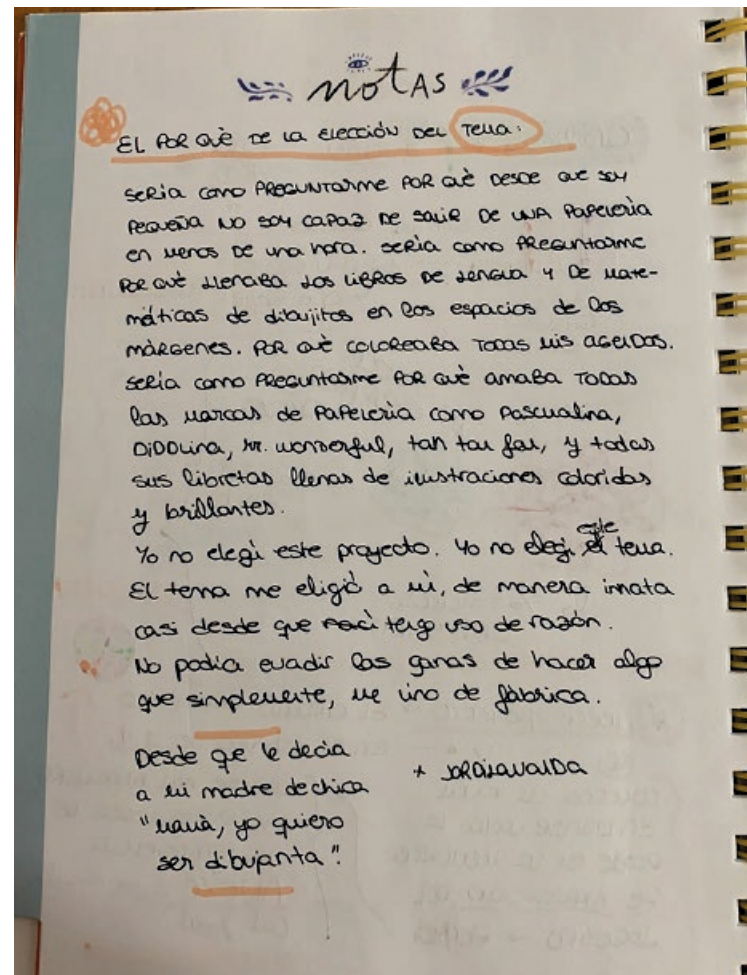 notas
EL POR QUÈ DE LA ELECCIÓN DEL TEMA:
SERÍA COMO PREGUNTARME POR QUÈ DESDE QUE SOY
PEQUEÑA NO SOY CAPAZ DE SALIR DE UNA PAPELERÍA
EN MENOS DE UNA HORA. SERÍA COMO PREGUNTARME
POR QUÈ LLENABA LOS LIBROS DE LENGUA Y DE MATE-
máticas de dibujitos en los espacios de los
márgenes. POR QUÈ COLOREABA TODAS MIS AGENDAS.
SERÍA COMO PREGUNTARME POR QUÈ AMABA TODAS
las marcas de PAPELERÍA como Pascualina,
DIDDLINA, Mr. Wonderful, tan tan fan, y todas
sus libretas llenas de ilustraciones coloridas
y brillantes.
Yo no elegí este proyecto. Yo no elegí este tema.
El tema me eligió a mí, de manera innata
casi desde que tengo uso de razón.
No podía evadir las ganas de hacer algo
que simplemente, me vino de fábrica.
Desde que le decía
a mi madre de chica
"mamá, yo quiero
ser dibujanta".
+